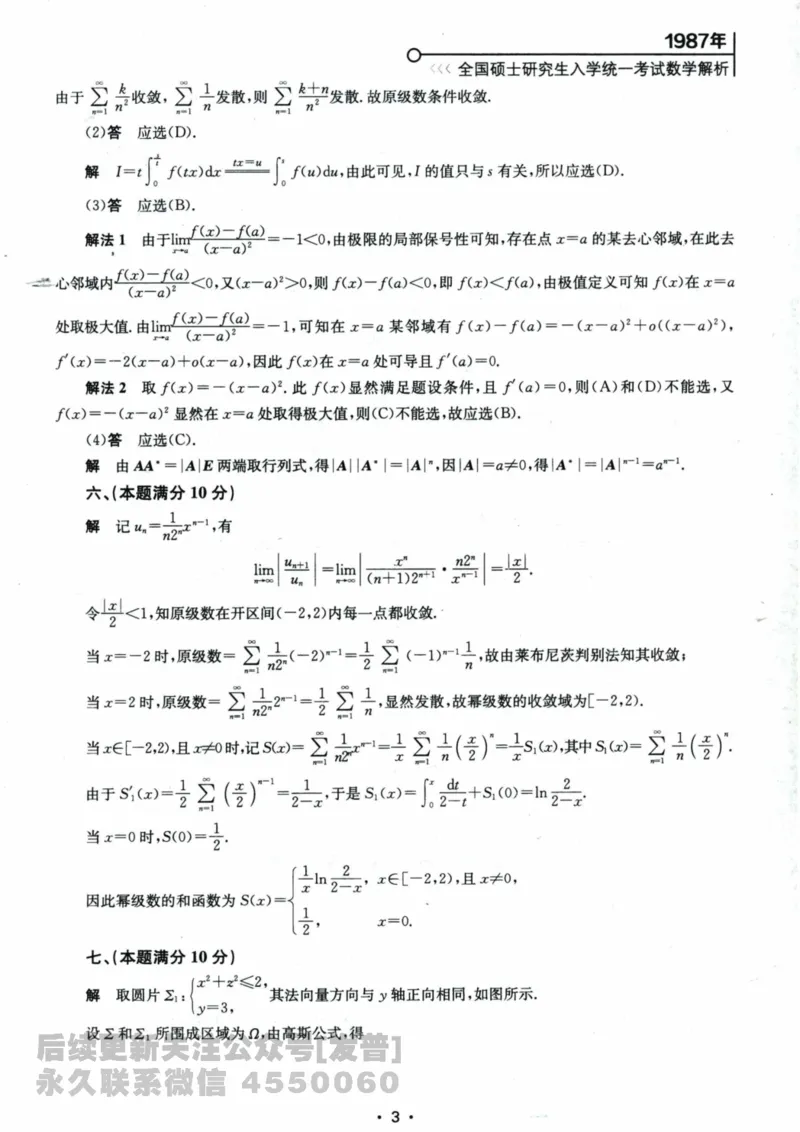 1987年
<<< 全国硕士研究生入学统一考试数学解析
由于 $\sum_{n=1}^{\infty}\frac{k}{n^2}$ 收敛, $\sum_{n=1}^{\infty}\frac{1}{n}$ 发散,则 $\sum_{n=1}^{\infty}\frac{k+n}{n^2}$ 发散. 故原级数条件收敛.
(2)答 应选(D).
解 $I=t\int_0^{\frac{s}{t}}f(tx)dx\xlongequal{tx=u}\int_0^s f(u)du$,由此可见,I 的值只与 s 有关,所以应选(D).
(3)答 应选(B).
解法 1 由于$\lim_{x\to a}\frac{f(x)-f(a)}{(x-a)^2}=-1<0$,由极限的局部保号性可知,存在点 x=a 的某去心邻域,在此去
心邻域内$\frac{f(x)-f(a)}{(x-a)^2}<0$,又$(x-a)^2>0$,则 f(x)-f(a)<0,即 f(x)<f(a),由极值定义可知 f(x)在 x=a
处取极大值. 由$\lim_{x\to a}\frac{f(x)-f(a)}{(x-a)^2}=-1$,可知在 x=a 某邻域有 $f(x)-f(a)=-(x-a)^2+o((x-a)^2)$,
$f'(x)=-2(x-a)+o(x-a)$,因此 f(x)在 x=a 处可导且 $f'(a)=0$.
解法 2 取 $f(x)=-(x-a)^2$. 此 f(x)显然满足题设条件,且 $f'(a)=0$,则(A)和(D)不能选,又
$f(x)=-(x-a)^2$ 显然在 x=a 处取得极大值,则(C)不能选,故应选(B).
(4)答 应选(C).
解 由 $AA^*=|A|E$ 两端取行列式,得$|A||A^*|=|A|^n$,因$|A|=a\neq0$,得$|A^*|=|A|^{n-1}=a^{n-1}$.
六、(本题满分 10 分)
解 记 $u_n=\frac{1}{n2^n}x^{n-1}$,有
$\lim_{n\to\infty}\left|\frac{u_{n+1}}{u_n}\right|=\lim_{n\to\infty}\left|\frac{x^n}{(n+1)2^{n+1}}\cdot\frac{n2^n}{x^{n-1}}\right|=\frac{|x|}{2}$.
令$\frac{|x|}{2}<1$,知原级数在开区间(-2,2)内每一点都收敛.
当 x=-2 时,原级数= $\sum_{n=1}^{\infty}\frac{1}{n2^n}(-2)^{n-1}=\frac{1}{2}\sum_{n=1}^{\infty}(-1)^{n-1}\frac{1}{n}$,故由莱布尼茨判别法知其收敛;
当 x=2 时,原级数= $\sum_{n=1}^{\infty}\frac{1}{n2^n}2^{n-1}=\frac{1}{2}\sum_{n=1}^{\infty}\frac{1}{n}$,显然发散,故幂级数的收敛域为[-2,2).
当 x∈[-2,2),且 x≠0时,记 $S(x)=\sum_{n=1}^{\infty}\frac{1}{n2^n}x^{n-1}=\frac{1}{x}\sum_{n=1}^{\infty}\frac{1}{n}\left(\frac{x}{2}\right)^n=\frac{1}{x}S_1(x)$,其中 $S_1(x)=\sum_{n=1}^{\infty}\frac{1}{n}\left(\frac{x}{2}\right)^n$.
由于 $S_1'(x)=\frac{1}{2}\sum_{n=1}^{\infty}\left(\frac{x}{2}\right)^{n-1}=\frac{1}{2-x}$,于是 $S_1(x)=\int_0^x\frac{dt}{2-t}+S_1(0)=\ln\frac{2}{2-x}$.
当 x=0 时,$S(0)=\frac{1}{2}$.
因此幂级数的和函数为 $S(x)=\begin{cases}\frac{1}{x}\ln\frac{2}{2-x}, & x\in[-2,2),且 x\neq0,\\ \frac{1}{2}, & x=0.\end{cases}$
七、(本题满分 10 分)
解 取圆片 $\Sigma_1:\begin{cases}x^2+z^2\leqslant2,\\ y=3,\end{cases}$ 其法向量方向与 y 轴正向相同,如图所示.
设 Σ 和 $\Sigma_1$ 所围成区域为 Ω,由高斯公式,得
后续更新关注公众号[发普]
永久联系微信 4550060
· 3 ·